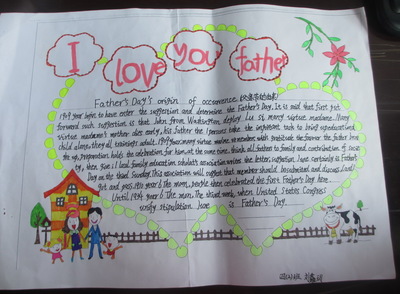 I love you father
Father's Day's origin of occurrence
1909 year begin to have enter the suggestion and determine the Father's Day. It is said that first put
forward such suggestion is that when from Washington deploy Lu si many virtue madame. Many
virtue madame's mother dies early, his father the 1 persons take the important task to bring up educational
child alone, they all trainings adult. 1909 year, many virtue madame remember with gratitude the favour the father love
the up, preparation holds the celebration for him, at the same time, think all father to family and contribution of social
by, then June, 1 local family education scholar's association writes the letter, suggestion June certainly is Father's
Day on the third Sunday. This association will suggest that member should be submitted and discuss, and
get and pass. 1910 year 6 the moon, people then celebrated the first Father's Day here.
Until 1934 year 6 the moon, The third week, when United States Congress
unify stipulation here is Father's Day.